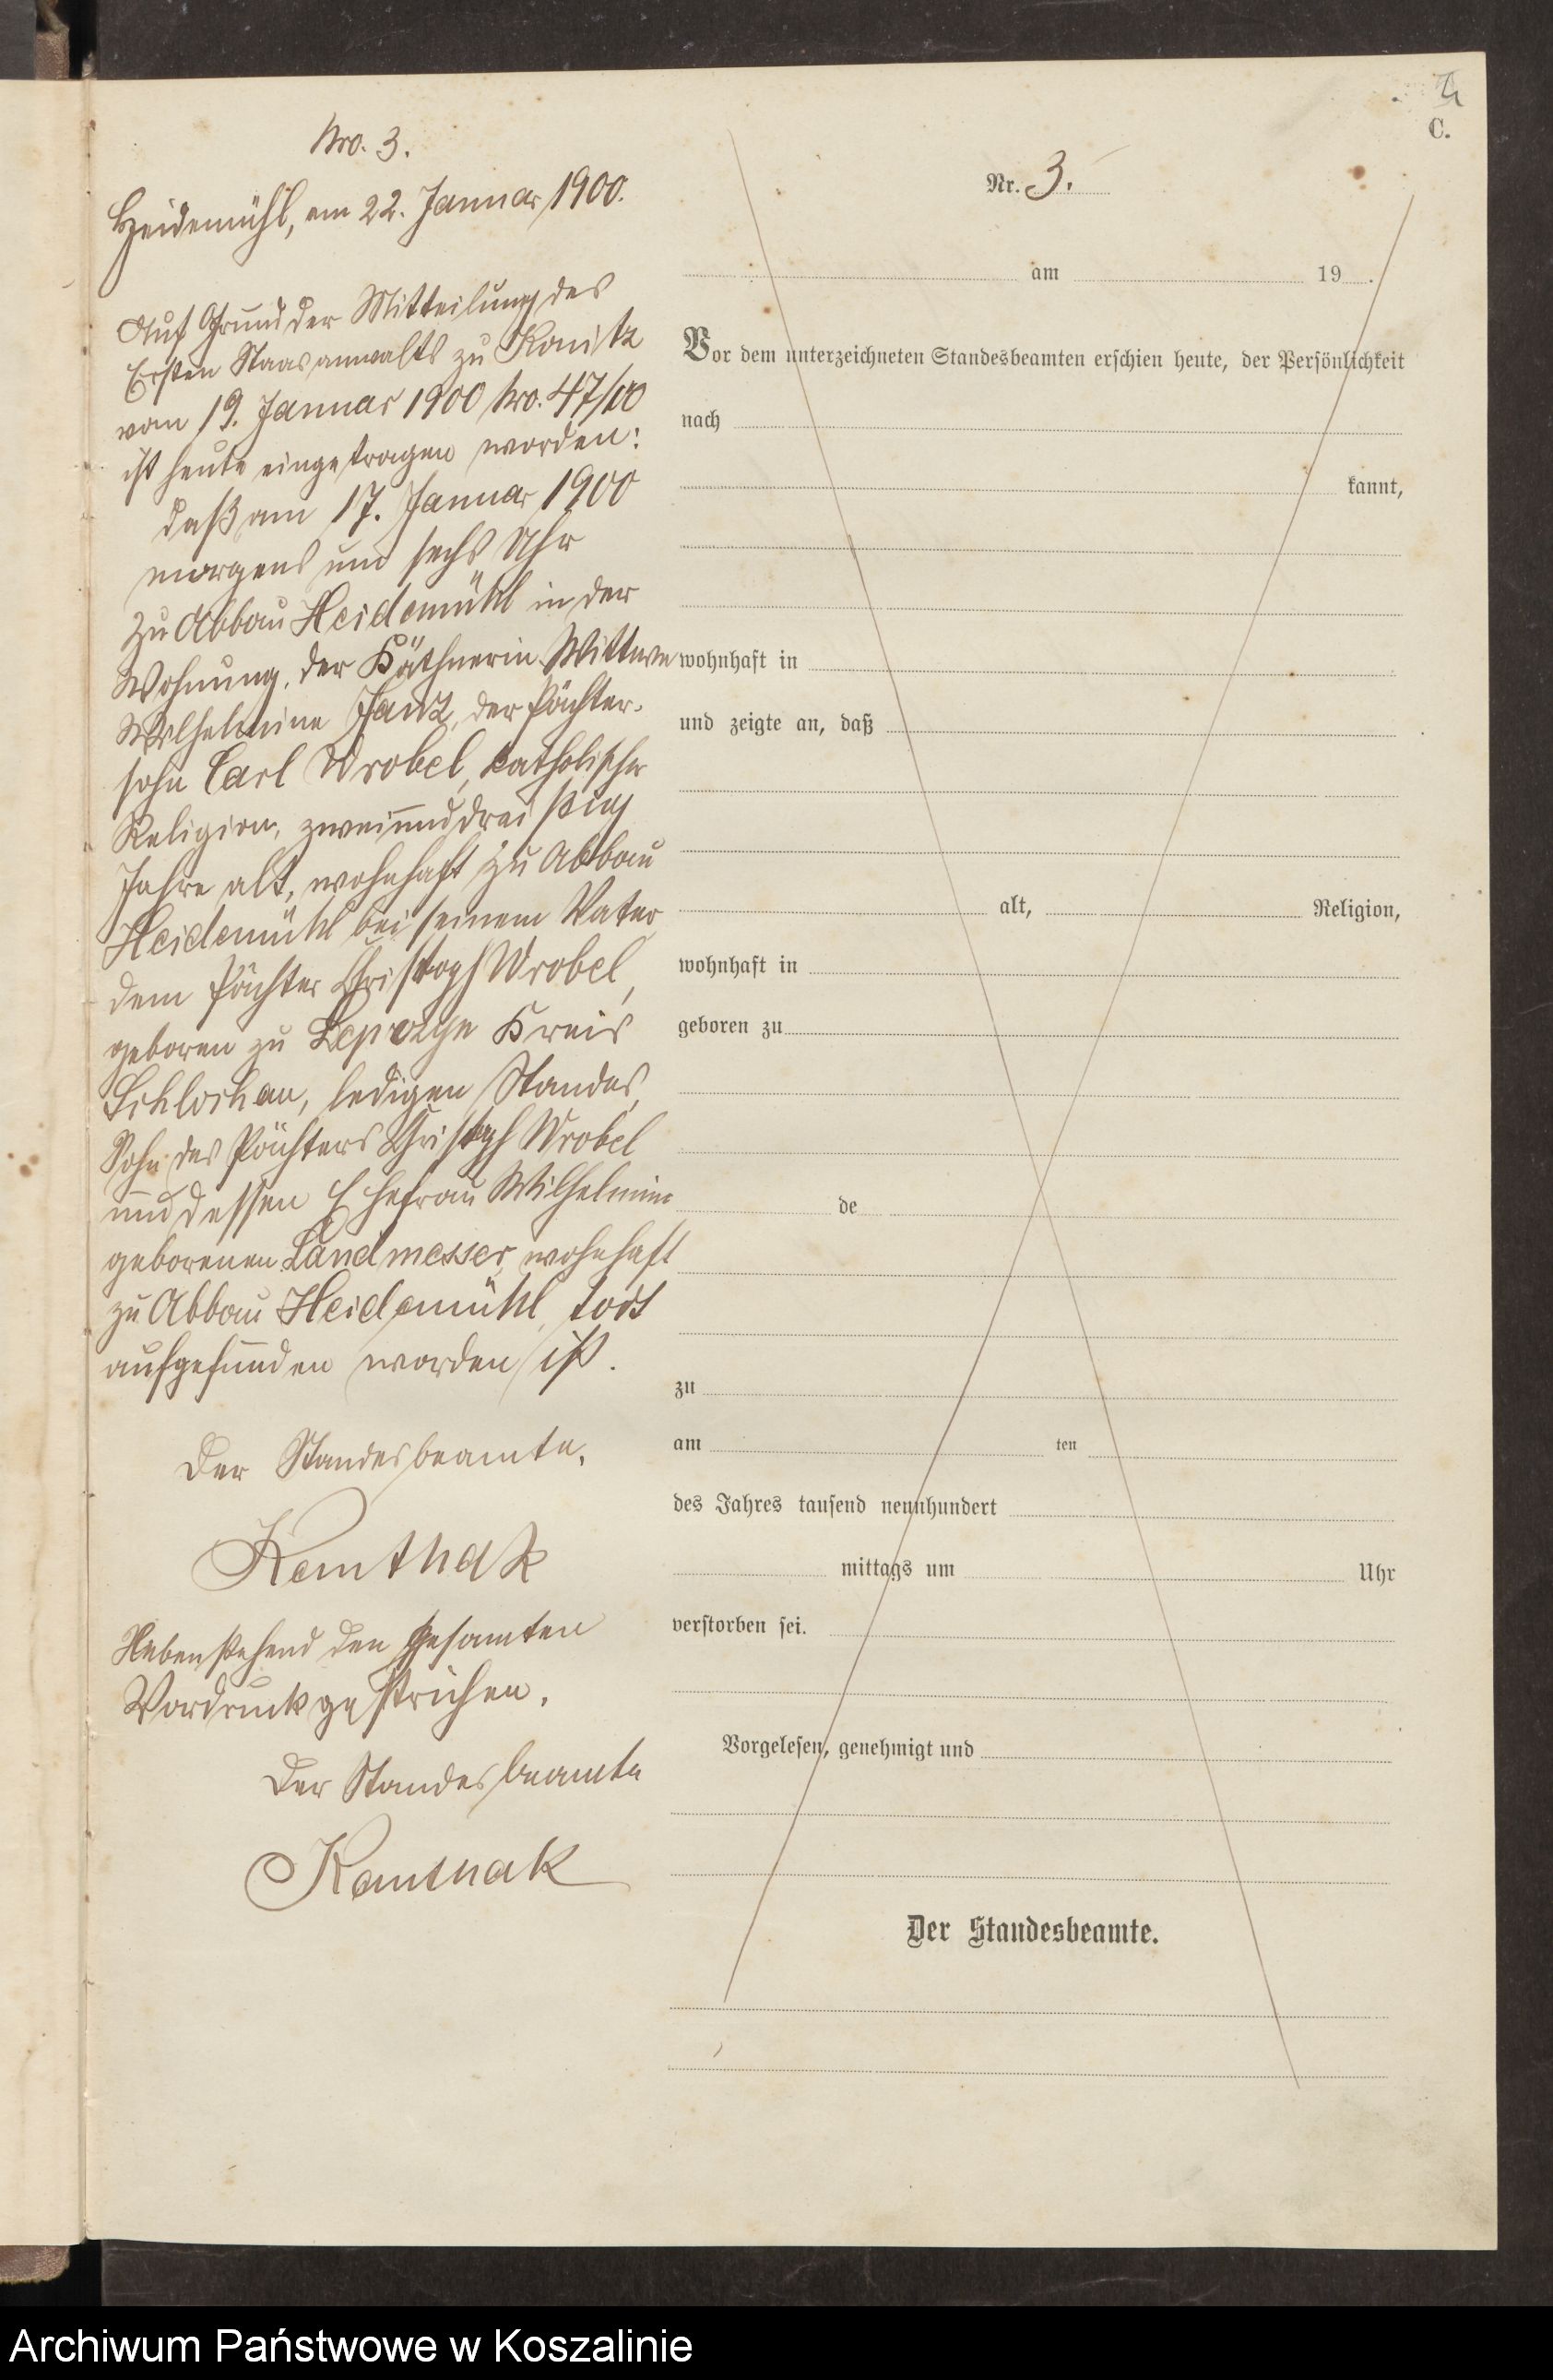 C.
Nro. 3.
Heidemühl, am 22. Januar 1900.
Auf Grund der Mitteilung des
Ersten Staasanwalts zu Konitz
vom 19. Januar 1900 Nro. 47/00
ist heute eingetragen worden:
daß am 17. Januar 1900
morgens um sechs Uhr
zu Abbau Heidemühl in der
Wohnung der Käthnerin Wittwe
Wilhelmine Janz, der Pächter-
sohn Carl Wrobel, katholischer
Religion, zweiunddreißig
Jahre alt, wohnhaft zu Abbau
Heidemühl bei seinem Vater,
dem Pächter Christoph Wrobel,
geboren zu Kreis
Schlochau, ledigen Standes,
Sohn des Pächters Christoph Wrobel
und dessen Ehefrau Wilhelmine
geborenen Landmesser, wohnhaft
zu Abbau Heidemühl, todt
aufgefunden worden ist.
Der Standesbeamte.
Kemthak
Nebenstehend den gesamten
Vordruck gestrichen.
Der Standesbeamte
Nr. 3.
am 19 .
Vor dem unterzeichneten Standesbeamten erschien heute, der Persönlichkeit
nach
kannt,
wohnhaft in
und zeigte an, daß
alt, Religion,
wohnhaft in
geboren zu
de
zu
am ten
des Jahres tausend neunhundert
mittags um Uhr
verstorben sei.
Vorgelesen, genehmigt und
Der Standesbeamte.
Archiwum Państwowe w Koszalinie